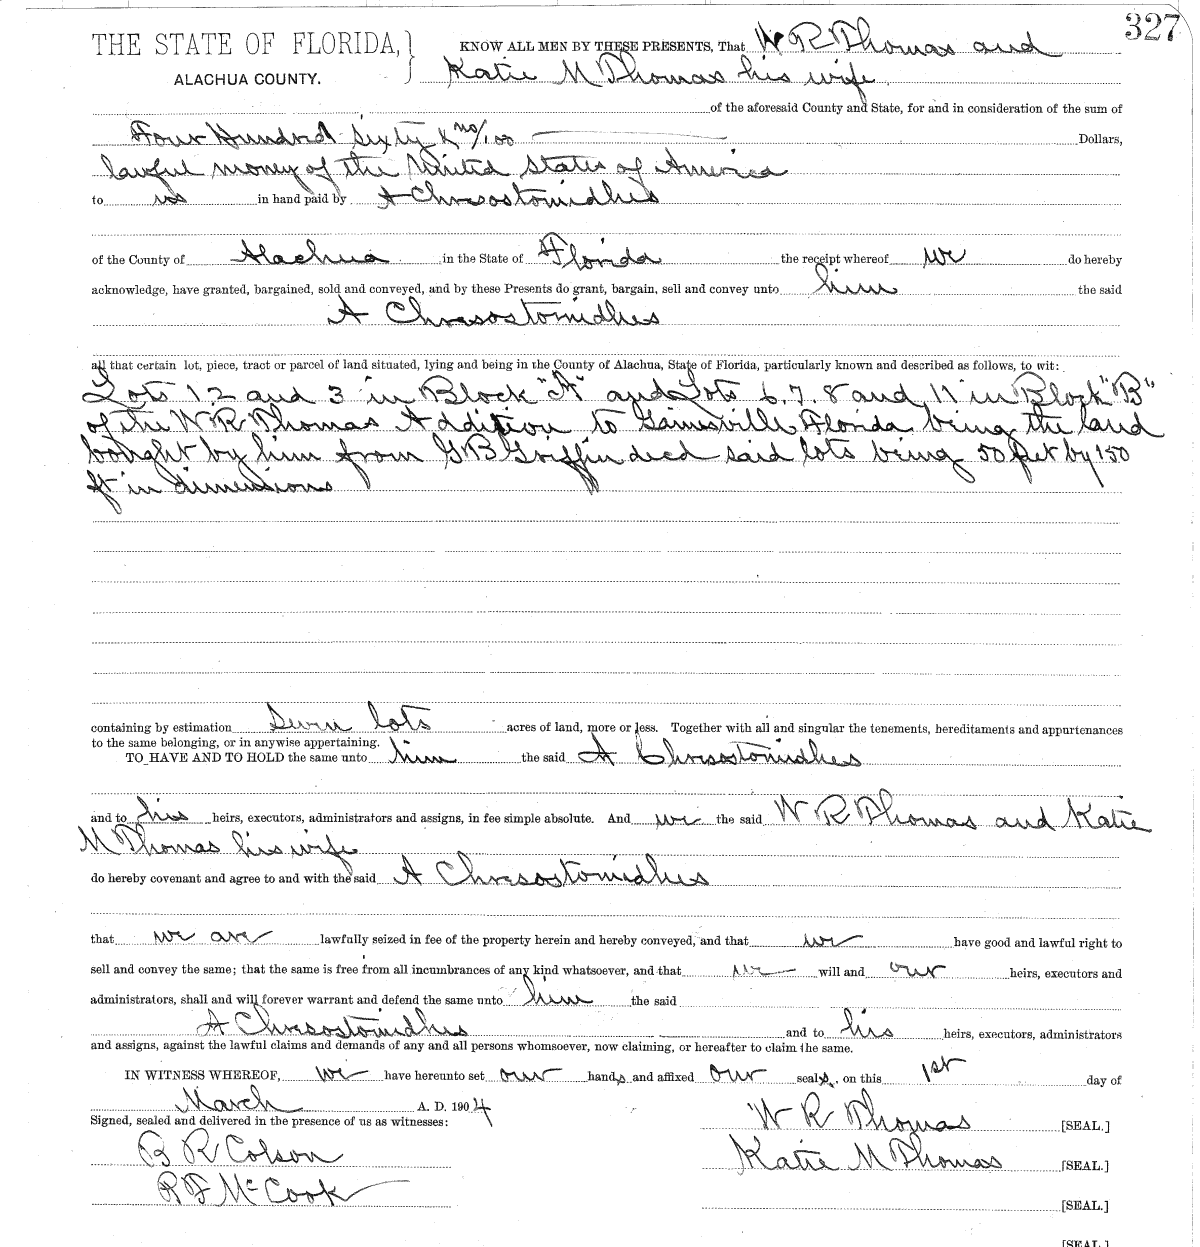 327
THE STATE OF FLORIDA,
ALACHUA COUNTY.
KNOW ALL MEN BY THESE PRESENTS, That W R Thomas and
Katie M Thomas his wife
of the aforesaid County and State, for and in consideration of the sum of
Four Hundred Sixty & no/100 Dollars,
lawful money of the United States of America
to us in hand paid by A Chresostomidhes
of the County of Alachua in the State of Florida the receipt whereof we do hereby
acknowledge, have granted, bargained, sold and conveyed, and by these Presents do grant, bargain, sell and convey unto him the said
A Chresostomidhes
all that certain lot, piece, tract or parcel of land situated, lying and being in the County of Alachua, State of Florida, particularly known and described as follows, to wit:
Lots 1 2 and 3 in Block "A" and Lots 6. 7. 8 and 11 in Block "B"
of the W R Thomas Addition to Gainesville Florida being the land
bought by him from G B Griffin decd said lots being 50 feet by 150
ft in dimensions
containing by estimation Seven lots acres of land, more or less. Together with all and singular the tenements, hereditaments and appurtenances
to the same belonging, or in anywise appertaining.
TO HAVE AND TO HOLD the same unto him the said A Chresostomidhes
and to his heirs, executors, administrators and assigns, in fee simple absolute. And we the said W R Thomas and Katie
M Thomas his wife
do hereby covenant and agree to and with the said A Chresostomidhes
that we are lawfully seized in fee of the property herein and hereby conveyed, and that we have good and lawful right to
sell and convey the same; that the same is free from all incumbrances of any kind whatsoever, and that we will and our heirs, executors and
administrators, shall and will forever warrant and defend the same unto him the said
A Chresostomidhes and to his heirs, executors, administrators
and assigns, against the lawful claims and demands of any and all persons whomsoever, now claiming, or hereafter to claim the same.
IN WITNESS WHEREOF, we have hereunto set our hands and affixed our seals, on this 1st day of
March A. D. 1904
Signed, sealed and delivered in the presence of us as witnesses:
W R Thomas [SEAL.]
B R Colson
Katie M Thomas [SEAL.]
R F McCook
[SEAL.]
[SEAL.]